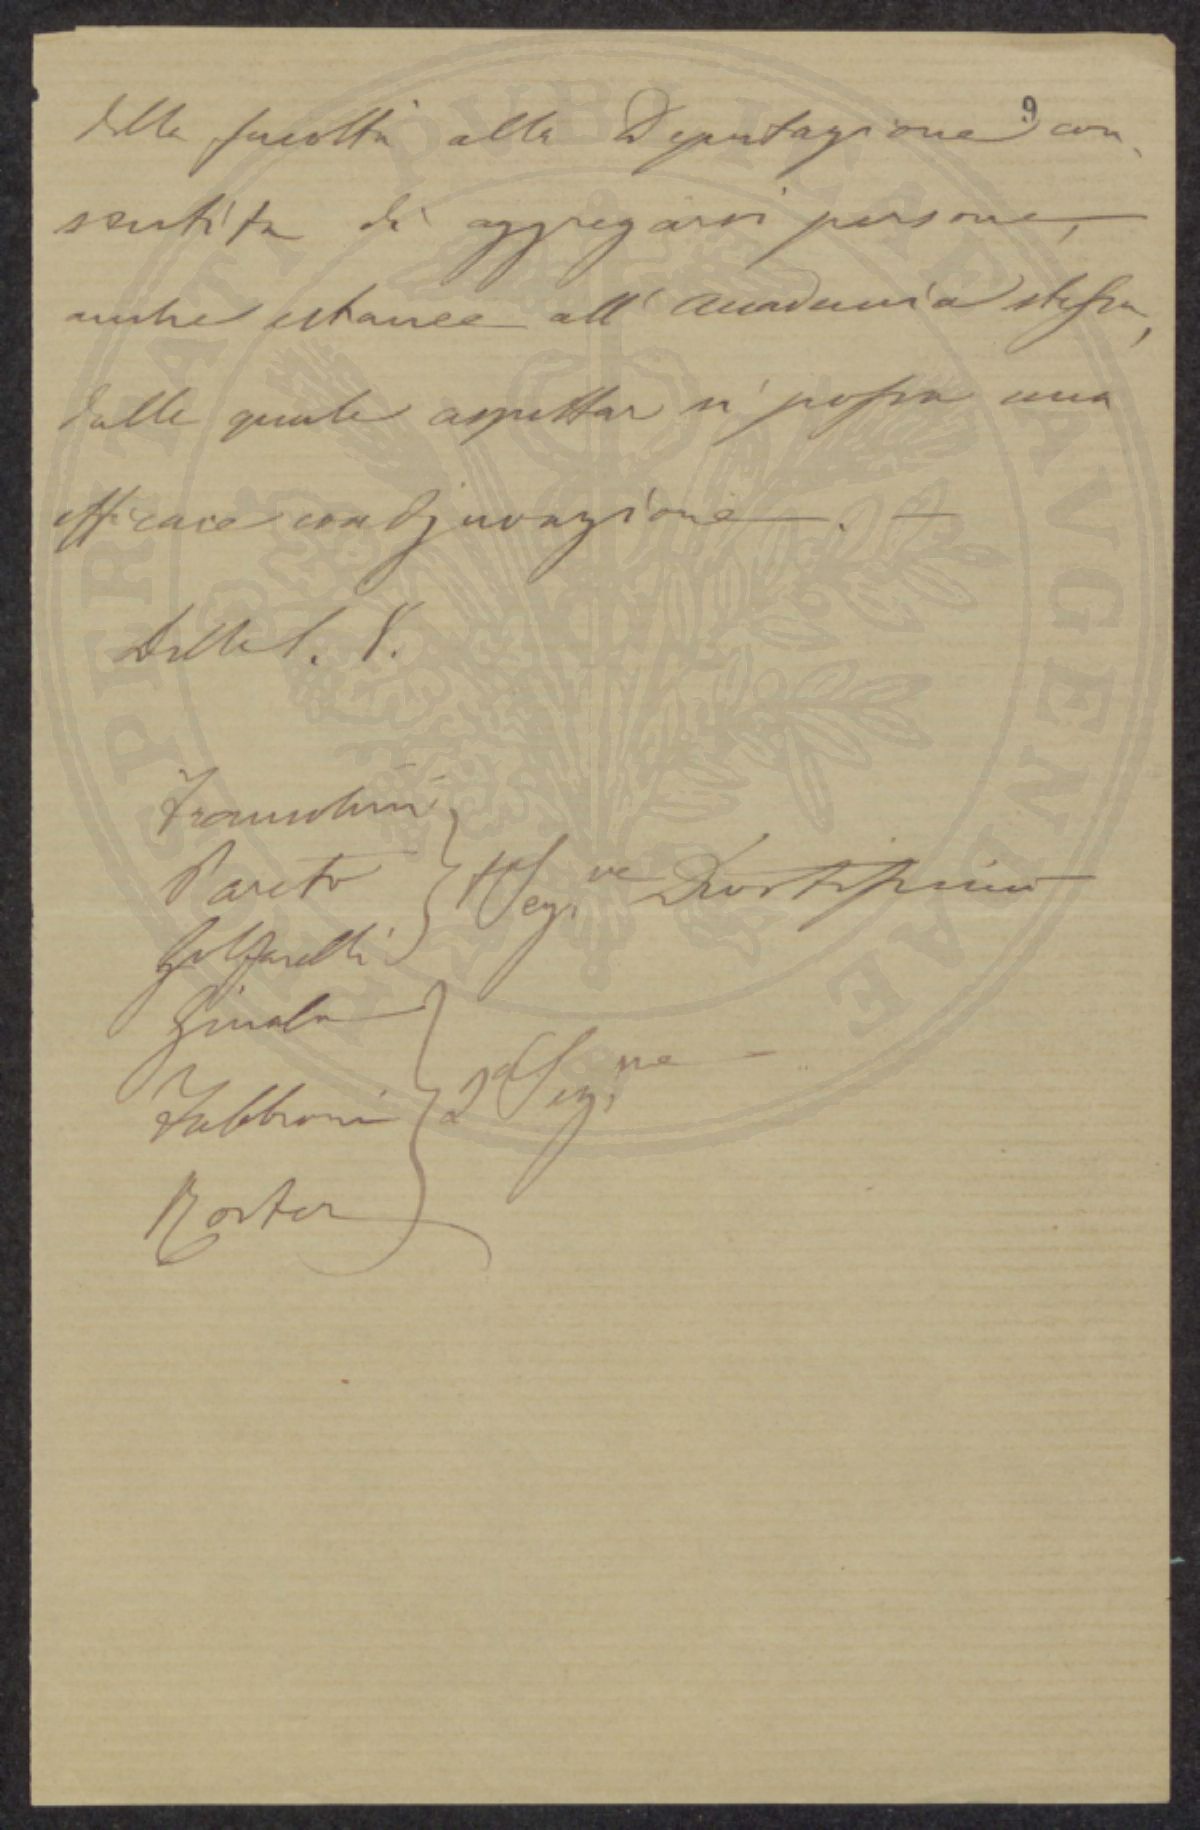 9
della facoltà alla Deputazione con-
sentita di aggregarsi persone,
anche estranee all'Accademia stessa,
dalle quale aspettar si possa una
efficace coadjuvazione. —
Della S. V.
Franceschini
Pareto
Golfarelli
1ª Sez.ne Devotissimi
Ginala
Fabbroni
2ª Sez.ne —
Roster
PROSPERITATI PVBLICAE AVGENDAE